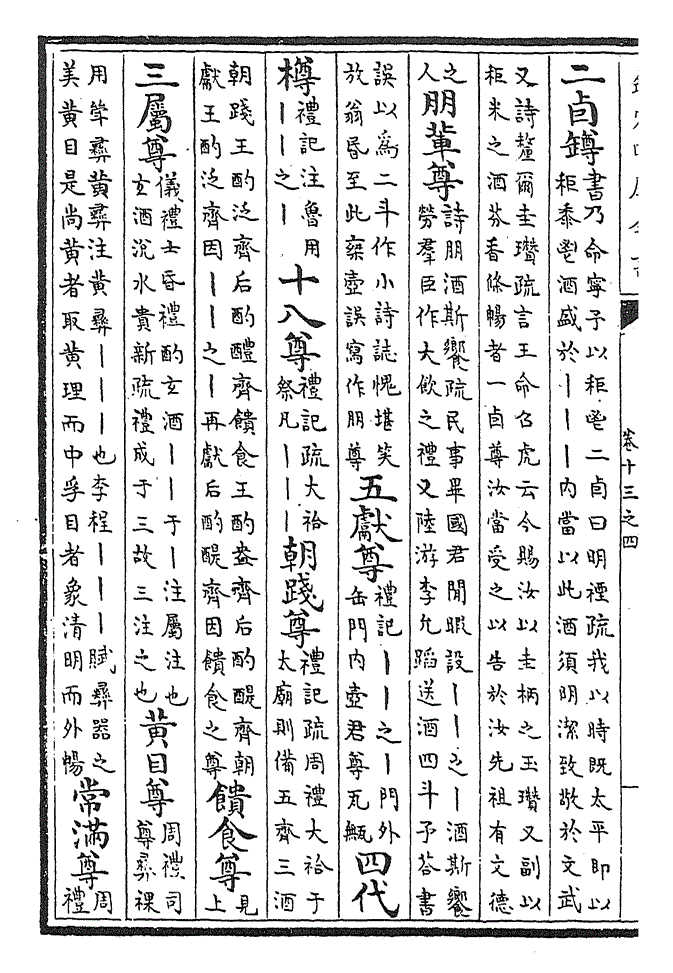 卷十三之四
二卣罇書乃命寧予以秬鬯二卣曰明禋疏我以時既太平即以
秬黍鬯酒盛於丨丨丨内當以此酒須明潔致敬於文武
又詩釐爾圭瓚疏言王命召虎云今賜汝以圭柄之玉瓚又副以
秬米之酒芬香條暢者一卣尊汝當受之以告於汝先祖有文德
之
人
朋輩尊詩朋酒斯饗疏民事畢國君閒暇設丨丨之丨酒斯饗
勞羣臣作大飲之禮又陸游李允蹈送酒四斗予荅書
誤以爲二斗作小詩誌愧堪笑
放翁昏至此椉壺誤寫作朋尊
五獻尊禮記丨丨之丨門外
缶門内壺君尊瓦甒
四代
樽禮記注魯用
丨丨之丨
十八尊禮記疏大祫
祭凡丨丨丨
朝踐尊禮記疏周禮大祫于
太廟則備五齊三酒
朝踐王酌泛齊后酌醴齊饋食王酌盎齊后酌醍齊朝
獻王酌泛齊因丨丨之丨再獻后酌醍齊因饋食之尊
饋食尊見
上
三屬尊儀禮士昏禮酌玄酒丨丨于丨注屬注也
玄酒涗水貴新疏禮成于三故三注之也
黃目尊周禮司
尊彞祼
用斝彞黃彞注黃彞丨丨丨也李程丨丨丨賦彞器之
美黃目是尚黃者取黃理而中孚目者象清明而外暢
常滿尊周
禮